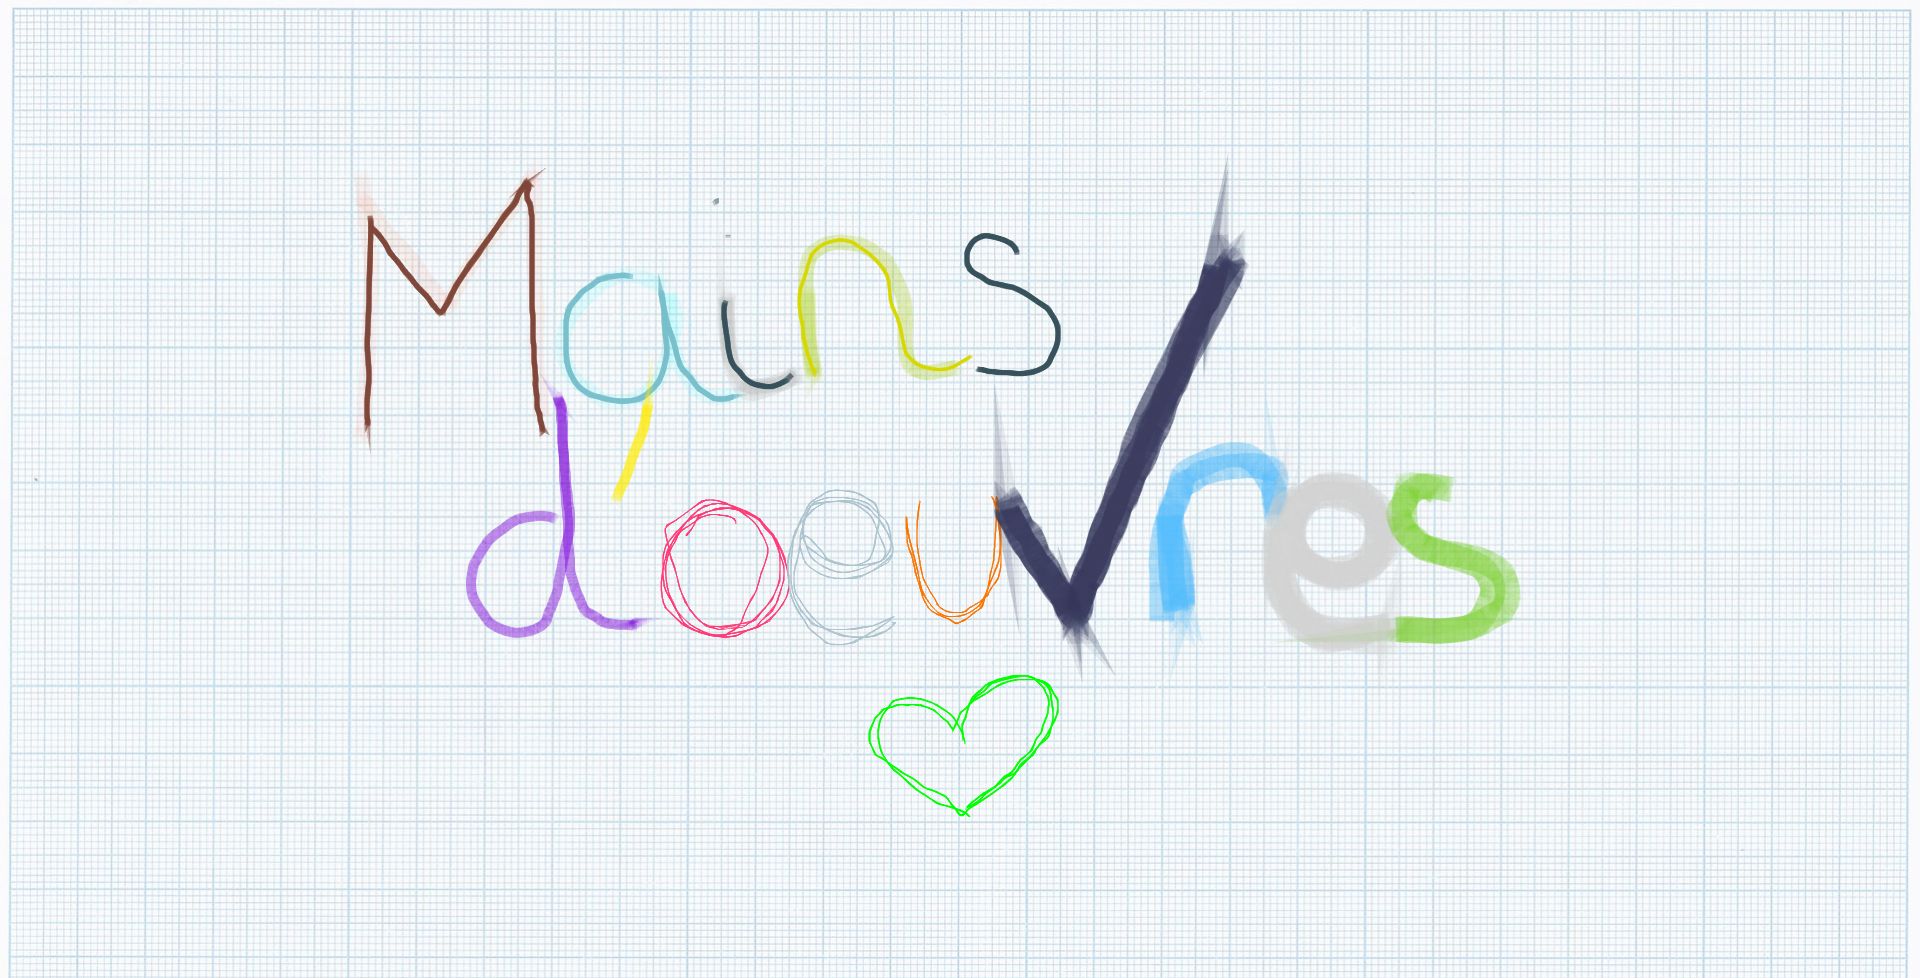 Mains
d'oeuvres